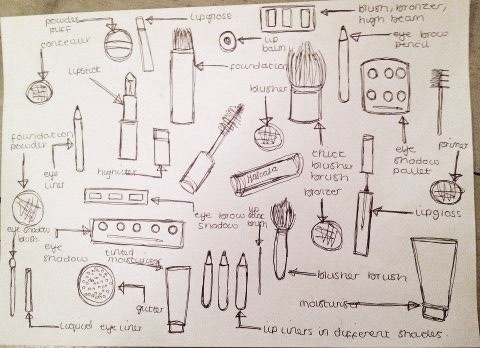 powder
puff
concealer
lipgloss
lip
balm
blush, bronzer,
high beam
eye brow
pencil
lipstick
foundation
blusher
foundation
powder
eye
liner
highliter
Mascara
thick
blusher
brush
bronzer
eye
shadow
pallet
primer
eye brow
shadow
lip
brush
lipgloss
eye shadow
brush
eye
shadow
tinted
moisturiser
glitter
blusher brush
moisturiser
liquid eye liner
lip liners in different shades.